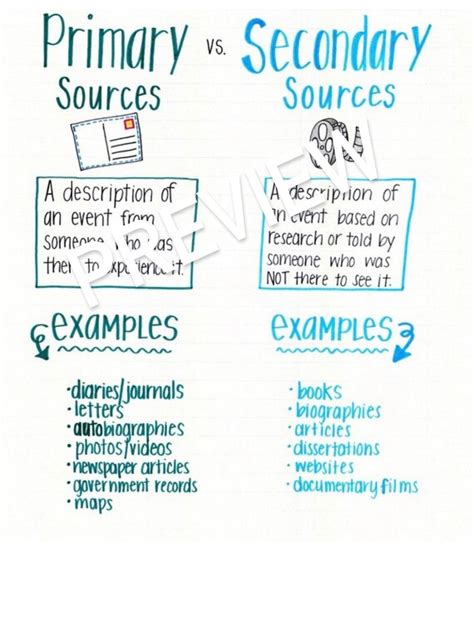 Primary vs. Secondary
Sources
Sources
PREVIEW
A description of
an event from
someone who was
there to experience it.
A description of
an event based on
research or told by
someone who was
NOT there to see it.
examples
•diaries/journals
•letters
•autobiographies
•photos/videos
•newspaper articles
•government records
•maps
examples
•books
•biographies
•articles
•dissertations
•websites
•documentary films